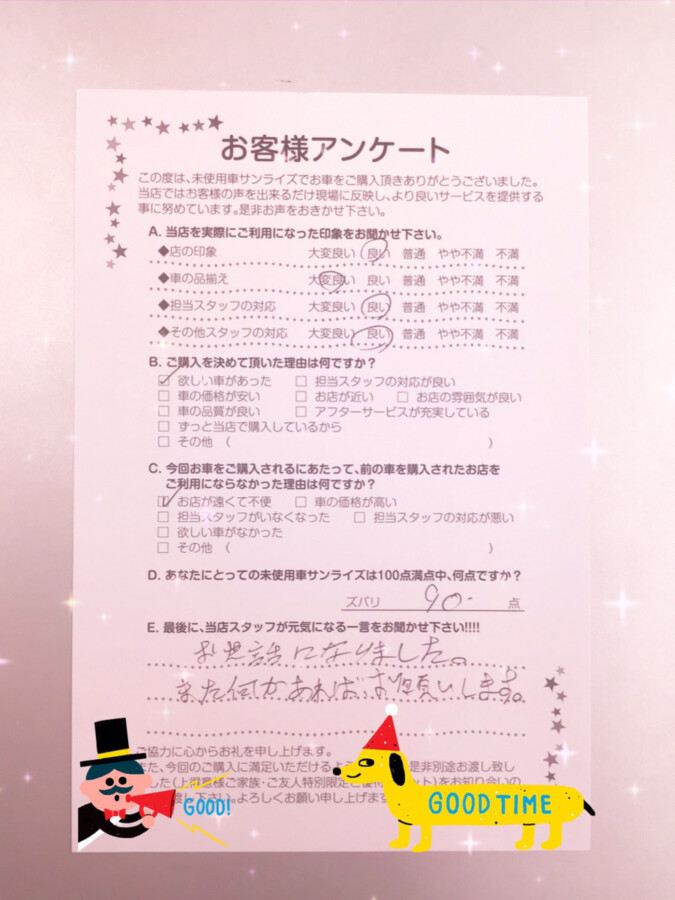 お客様アンケート
この度は、未使用車サンライズでお車をご購入頂きありがとうございました。
当店ではお客様の声を出来るだけ現場に反映し、より良いサービスを提供する
事に努めています。是非お声をおきかせ下さい。
A. 当店を実際にご利用になった印象をお聞かせ下さい。
◆店の印象 大変良い 良い 普通 やや不満 不満
◆車の品揃え 大変良い 良い 普通 やや不満 不満
◆担当スタッフの対応 大変良い 良い 普通 やや不満 不満
◆その他スタッフの対応 大変良い 良い 普通 やや不満 不満
B. ご購入を決めて頂いた理由は何ですか？
☑ 欲しい車があった □ 担当スタッフの対応が良い
□ 車の価格が安い □ お店が近い □ お店の雰囲気が良い
□ 車の品質が良い □ アフターサービスが充実している
□ ずっと当店で購入しているから
□ その他（ ）
C. 今回お車をご購入されるにあたって、前の車を購入されたお店を
ご利用にならなかった理由は何ですか？
☑ お店が遠くて不便 □ 車の価格が高い
□ 担当スタッフがいなくなった □ 担当スタッフの対応が悪い
□ 欲しい車がなかった
□ その他（ ）
D. あなたにとっての未使用車サンライズは100点満点中、何点ですか？
ズバリ 90. 点
E. 最後に、当店スタッフが元気になる一言をお聞かせ下さい!!!!
お世話になりました。
また何かあればお願いします。
ご協力に心からお礼を申し上げます。
また、今回のご購入に満足いただけるよう 是非別途お渡し致し
した（上得意様ご家族・ご友人特別限定ご優待 ット）をお知り合いの
下さい。よろしくお願い申し上げます
GOOD!
GOOD TIME